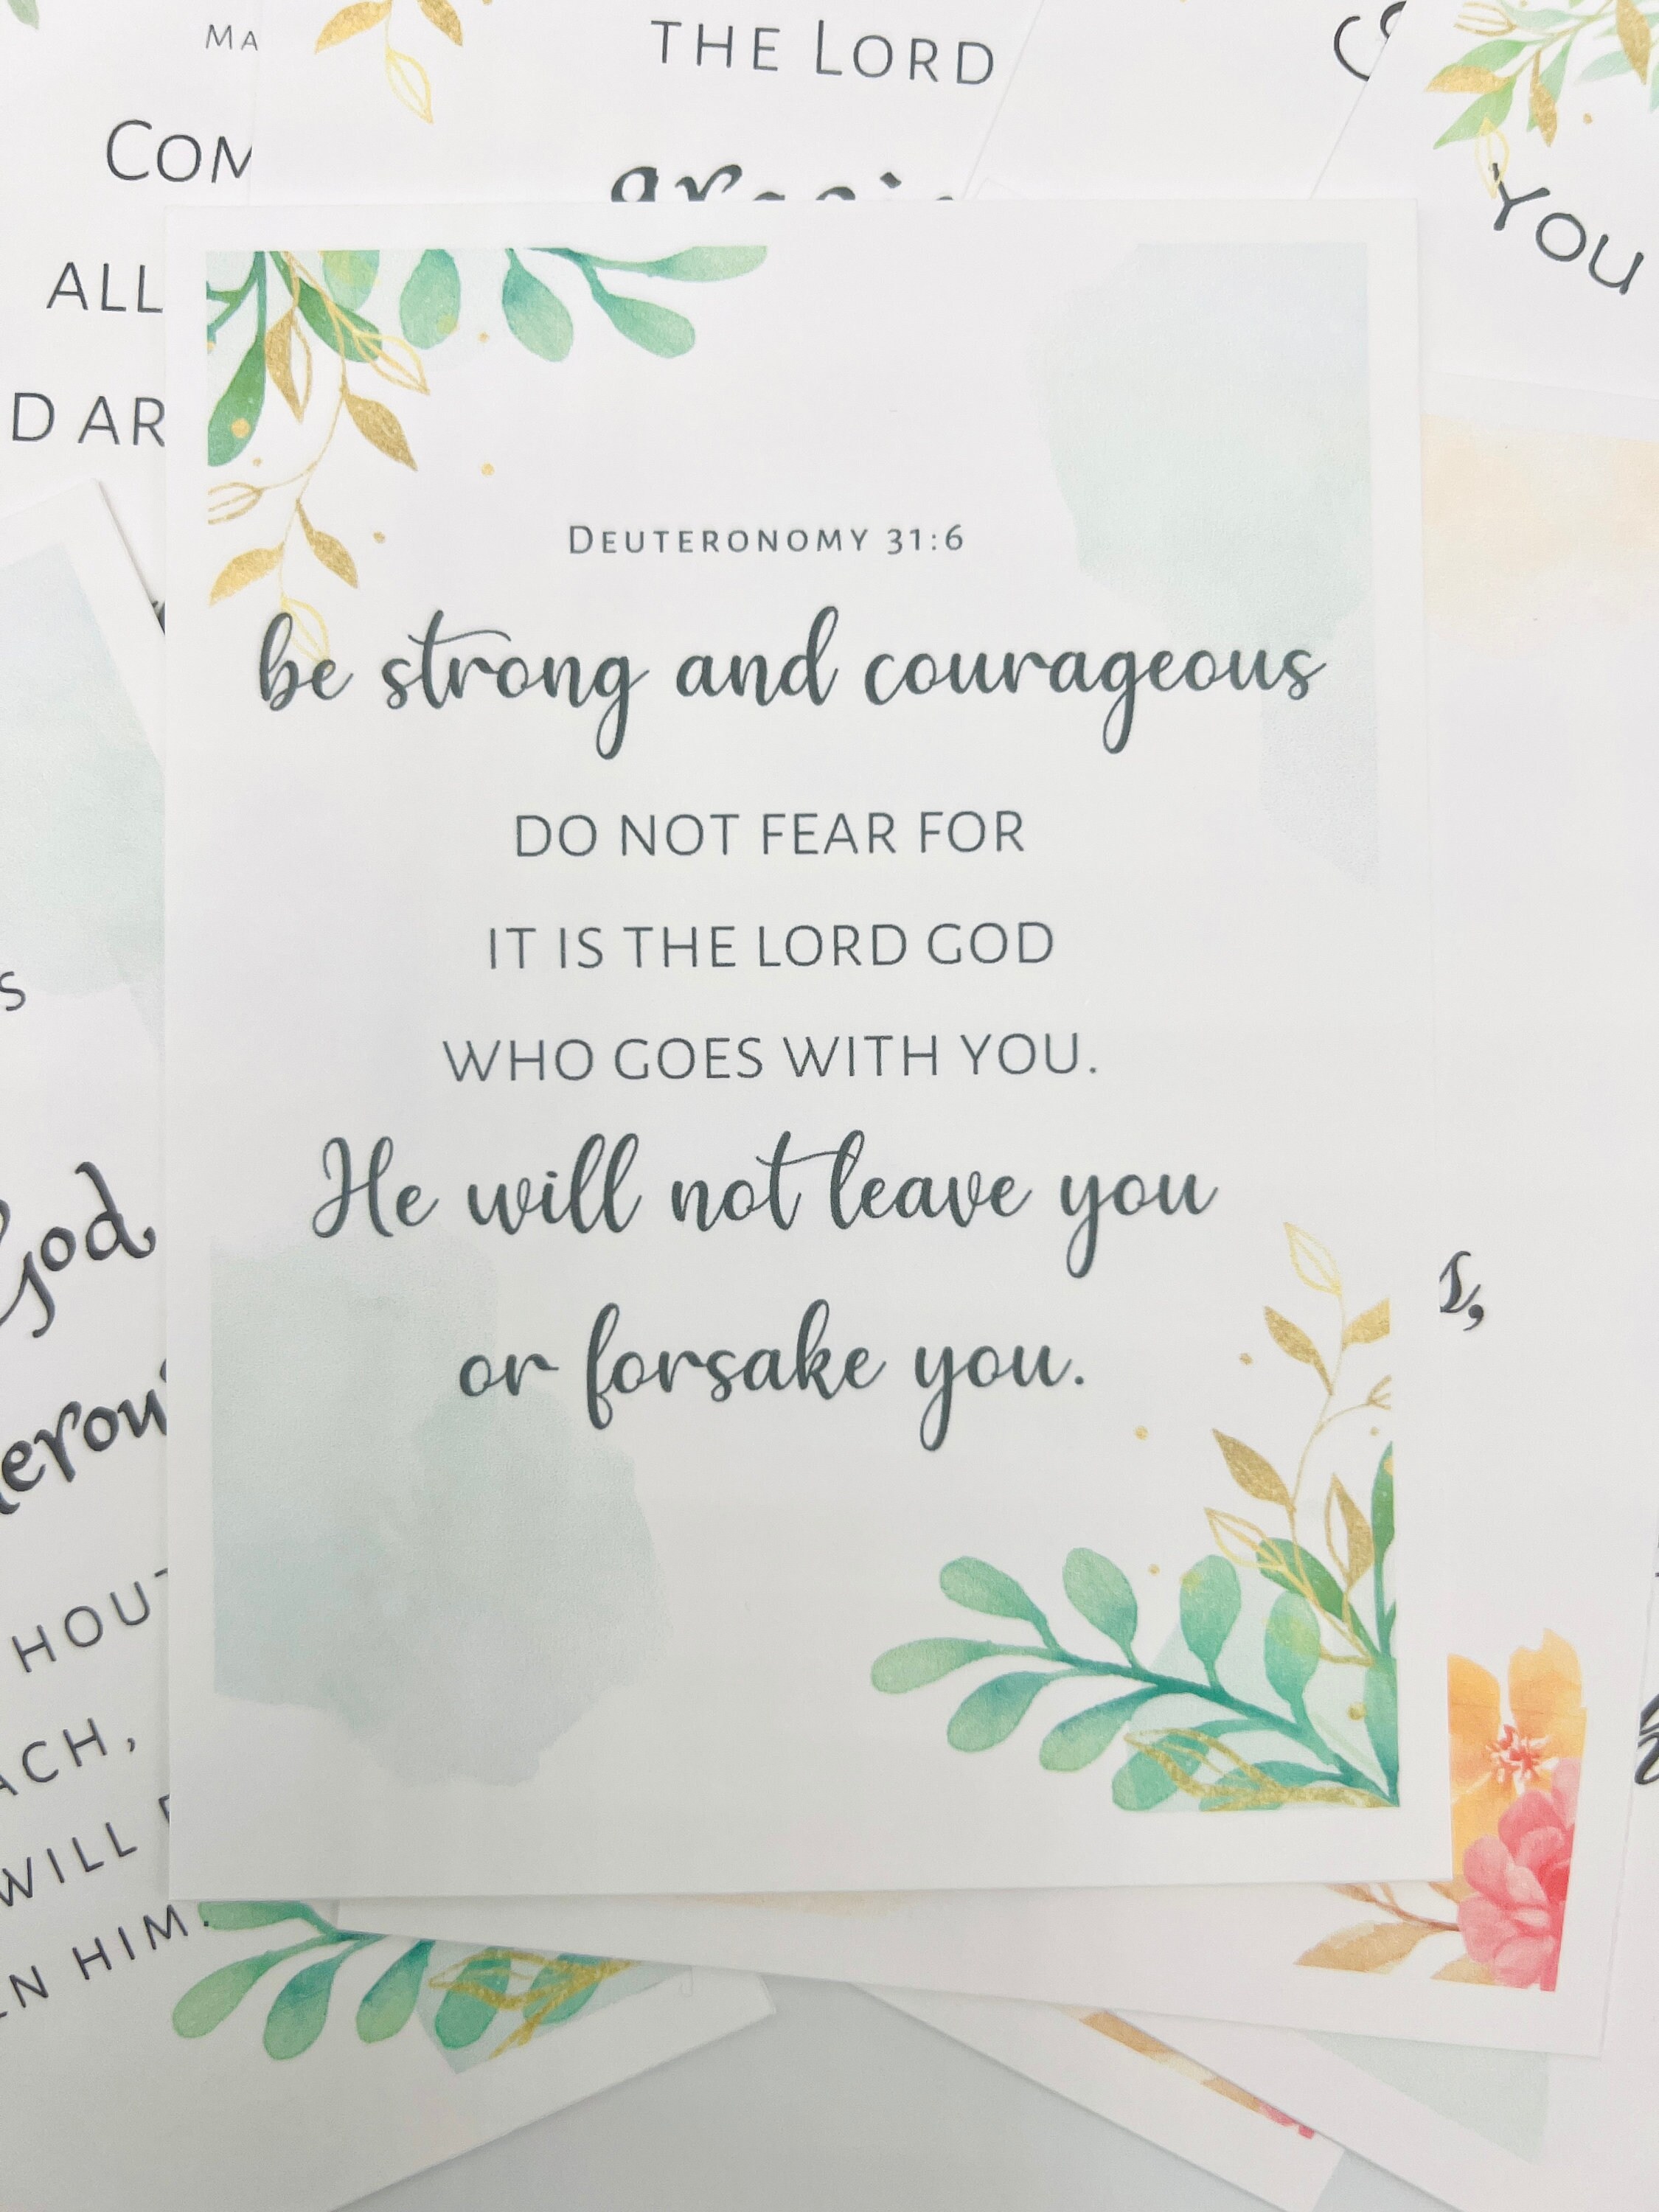 MA
COM
ALL
D AR
THE LORD
YOU
DEUTERONOMY 31:6
be strong and courageous
DO NOT FEAR FOR
IT IS THE LORD GOD
WHO GOES WITH YOU.
He will not leave you
or forsake you.
S
God
HOUT
ACH,
WILL
EN HIM.
s,